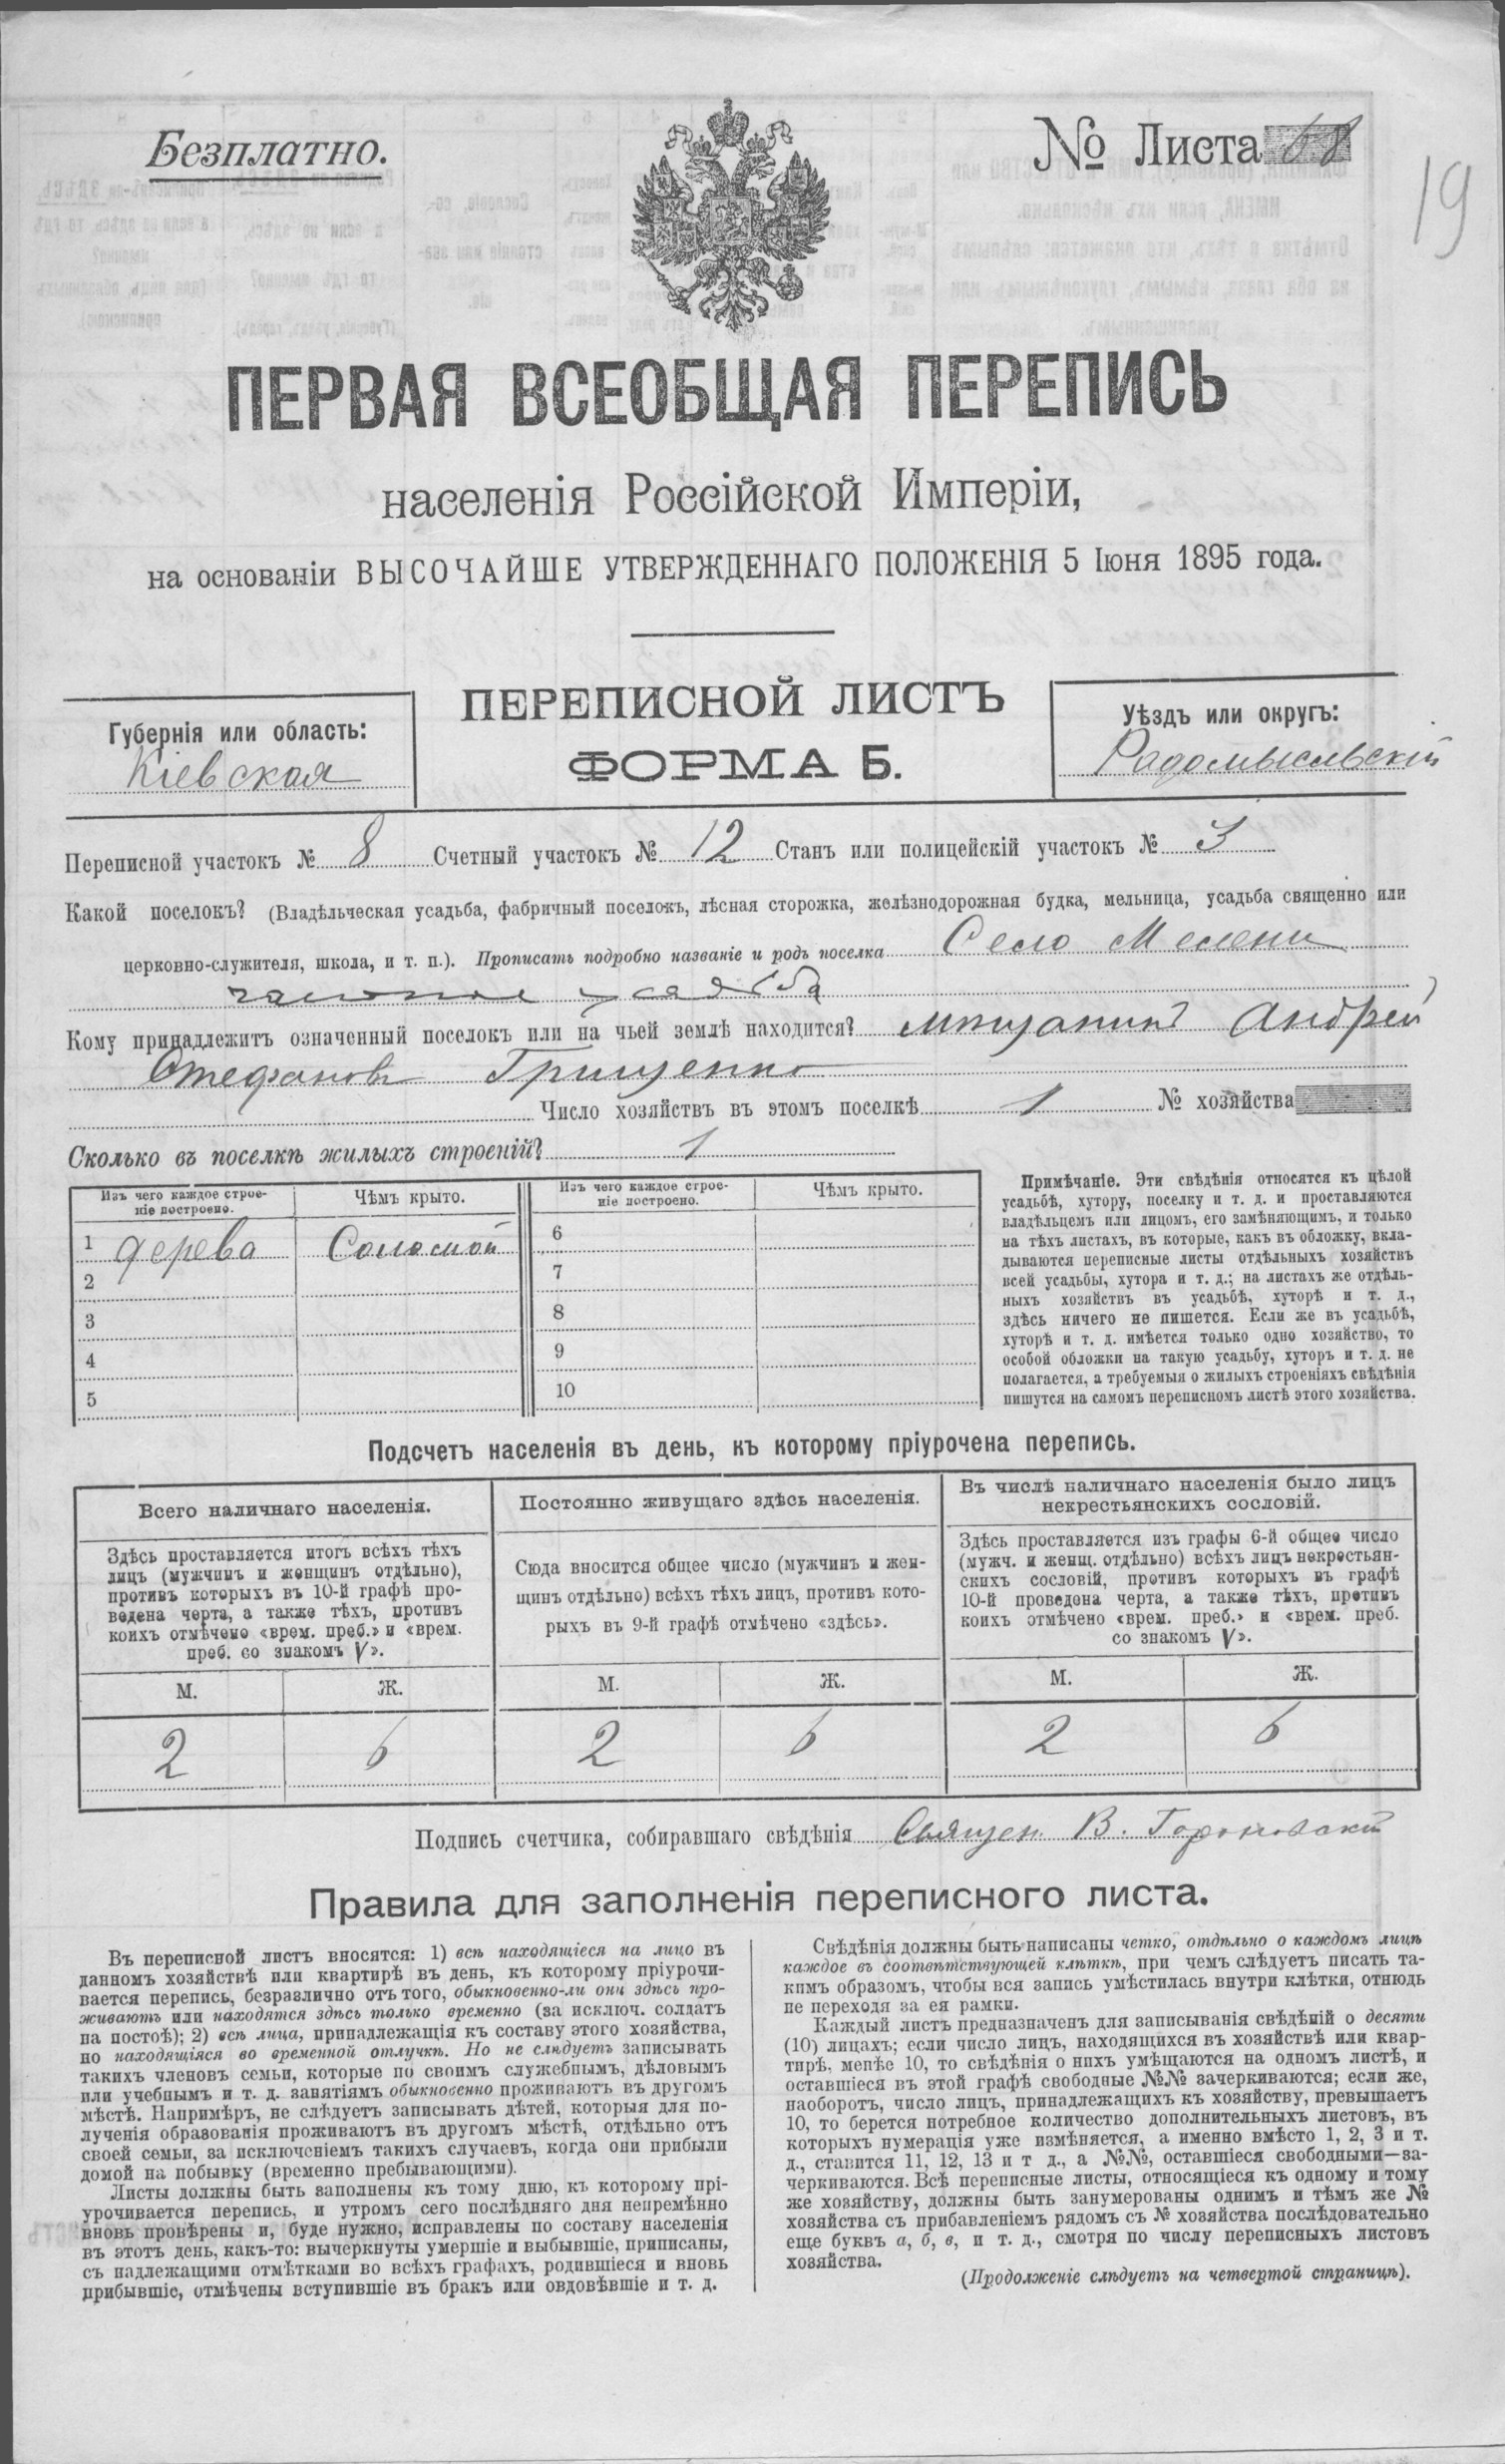 Безплатно.
№ Листа 68
19
ПЕРВАЯ ВСЕОБЩАЯ ПЕРЕПИСЬ
населенія Россійской Имперіи,
на основаніи ВЫСОЧАЙШЕ УТВЕРЖДЕННАГО ПОЛОЖЕНІЯ 5 Іюня 1895 года.
ПЕРЕПИСНОЙ ЛИСТЪ
ФОРМА Б.
Губернія или область:
Кіевская
Уѣздъ или округъ:
Радомысльскій
Переписной участокъ № 8 Счетный участокъ № 12 Станъ или полицейскій участокъ № 3
Какой поселокъ? (Владѣльческая усадьба, фабричный поселокъ, лѣсная сторожка, желѣзнодорожная будка, мельница, усадьба священно или
церковно-служителя, школа, и т. п.). Прописать подробно названіе и родъ поселка Село Мелени
усадьба
Кому принадлежитъ означенный поселокъ или на чьей землѣ находится? мѣщанинъ Андрей
Стефановъ Грищенко
Число хозяйствъ въ этомъ поселкѣ 1 № хозяйства
Сколько въ поселкѣ жилыхъ строеній? 1
Изъ чего каждое строе-
ніе построено.
Чѣмъ крыто.
Изъ чего каждое строе-
ніе построено.
Чѣмъ крыто.
1 дерева Соломой 6
2 7
3 8
4 9
5 10
Примѣчаніе. Эти свѣдѣнія относятся къ цѣлой
усадьбѣ, хутору, поселку и т. д. и проставляются
владѣльцемъ или лицомъ, его замѣняющимъ, и только
на тѣхъ листахъ, въ которые, какъ въ обложку, вкла-
дываются переписные листы отдѣльныхъ хозяйствъ
всей усадьбы, хутора и т. д.; на листахъ же отдѣль-
ныхъ хозяйствъ въ усадьбѣ, хуторѣ и т. д.,
здѣсь ничего не пишется. Если же въ усадьбѣ,
хуторѣ и т. д. имѣется только одно хозяйство, то
особой обложки на такую усадьбу, хуторъ и т. д. не
полагается, а требуемыя о жилыхъ строеніяхъ свѣдѣнія
пишутся на самомъ переписномъ листѣ этого хозяйства.
Подсчетъ населенія въ день, къ которому пріурочена перепись.
Всего наличнаго населенія.
Здѣсь проставляется итогъ всѣхъ тѣхъ
лицъ (мужчинъ и женщинъ отдѣльно),
противъ которыхъ въ 10-й графѣ про-
ведена черта, а также тѣхъ, противъ
коихъ отмѣчено «врем. преб.» и «врем.
преб. со знакомъ V».
Постоянно живущаго здѣсь населенія.
Сюда вносится общее число (мужчинъ и жен-
щинъ отдѣльно) всѣхъ тѣхъ лицъ, противъ кото-
рыхъ въ 9-й графѣ отмѣчено «здѣсь».
Въ числѣ наличнаго населенія было лицъ
некрестьянскихъ сословій.
Здѣсь проставляется изъ графы 6-й общее число
(мужч. и женщ. отдѣльно) всѣхъ лицъ некрестьян-
скихъ сословій, противъ которыхъ въ графѣ
10-й проведена черта, а также тѣхъ, противъ
коихъ отмѣчено «врем. преб.» и «врем. преб.
со знакомъ V».
М. Ж. М. Ж. М. Ж.
2 6 2 6 2 6
Подпись счетчика, собиравшаго свѣдѣнія Священ. В. Гороновскій
Правила для заполненія переписного листа.
Въ переписной листъ вносятся: 1) всѣ находящіеся на лицо въ
данномъ хозяйствѣ или квартирѣ въ день, къ которому пріурочи-
вается перепись, безразлично отъ того, обыкновенно-ли они здѣсь про-
живаютъ или находятся здѣсь только временно (за исключ. солдатъ
на постоѣ); 2) всѣ лица, принадлежащія къ составу этого хозяйства,
но находящіяся во временной отлучкѣ. Но не слѣдуетъ записывать
такихъ членовъ семьи, которые по своимъ служебнымъ, дѣловымъ
или учебнымъ и т. д. занятіямъ обыкновенно проживаютъ въ другомъ
мѣстѣ. Напримѣръ, не слѣдуетъ записывать дѣтей, которыя для по-
лученія образованія проживаютъ въ другомъ мѣстѣ, отдѣльно отъ
своей семьи, за исключеніемъ такихъ случаевъ, когда они прибыли
домой на побывку (временно пребывающими).
Листы должны быть заполнены къ тому дню, къ которому прі-
урочивается перепись, и утромъ сего послѣдняго дня непремѣнно
вновь провѣрены и, буде нужно, исправлены по составу населенія
въ этотъ день, какъ-то: вычеркнуты умершіе и выбывшіе, приписаны,
съ надлежащими отмѣтками во всѣхъ графахъ, родившіеся и вновь
прибывшіе, отмѣчены вступившіе въ бракъ или овдовѣвшіе и т. д.
Свѣдѣнія должны быть написаны четко, отдѣльно о каждомъ лицѣ
каждое въ соотвѣтствующей клѣткѣ, при чемъ слѣдуетъ писать та-
кимъ образомъ, чтобы вся запись умѣстилась внутри клѣтки, отнюдь
не переходя за ея рамки.
Каждый листъ предназначенъ для записыванія свѣдѣній о десяти
(10) лицахъ; если число лицъ, находящихся въ хозяйствѣ или квар-
тирѣ, менѣе 10, то свѣдѣнія о нихъ умѣщаются на одномъ листѣ, и
оставшіеся въ этой графѣ свободные №№ зачеркиваются; если же,
наоборотъ, число лицъ, принадлежащихъ къ хозяйству, превышаетъ
10, то берется потребное количество дополнительныхъ листовъ, въ
которыхъ нумерація уже измѣняется, а именно вмѣсто 1, 2, 3 и т.
д., ставится 11, 12, 13 и т д., а №№, оставшіеся свободными—за-
черкиваются. Всѣ переписные листы, относящіеся къ одному и тому
же хозяйству, должны быть занумерованы однимъ и тѣмъ же №
хозяйства съ прибавленіемъ рядомъ съ № хозяйства послѣдовательно
еще буквъ а, б, в, и т. д., смотря по числу переписныхъ листовъ
хозяйства.
(Продолженіе слѣдуетъ на четвертой страницѣ).